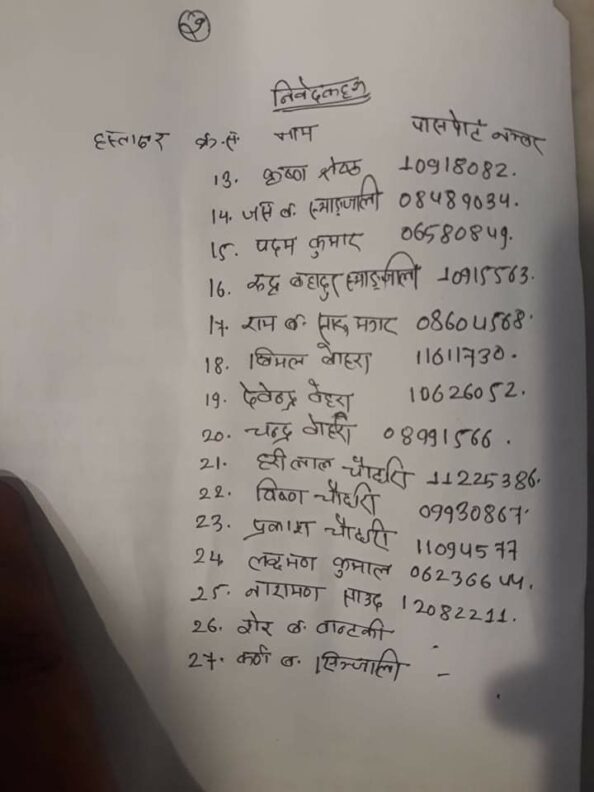 २
निवेदकहरु
हस्ताक्षर क्र.सं. नाम पासपोर्ट नम्बर
13. कृष्ण श्रेष्ठ 10918082.
14. जसि ब. स्याङ्जाली 08489034.
15. पदम कुमार 06580849.
16. रुद्र बहादुर स्याङ्जाली 10915563.
17. राम ब. सारु मगर 08604568.
18. बिमल बोहरा 11611730.
19. देवेन्द्र बोहरा 10626052.
20. चन्द्र बोहरा 08991566.
21. हरीलाल चौधरी 11225386.
22. विष्ण चौधरी 09930867.
23. प्रकाश चौधरी 11094577
24. लक्ष्मण कुमाल 06236644.
25. नारायण साउद 12082211.
26. शेर ब.
27. ब. सिन्जाली -